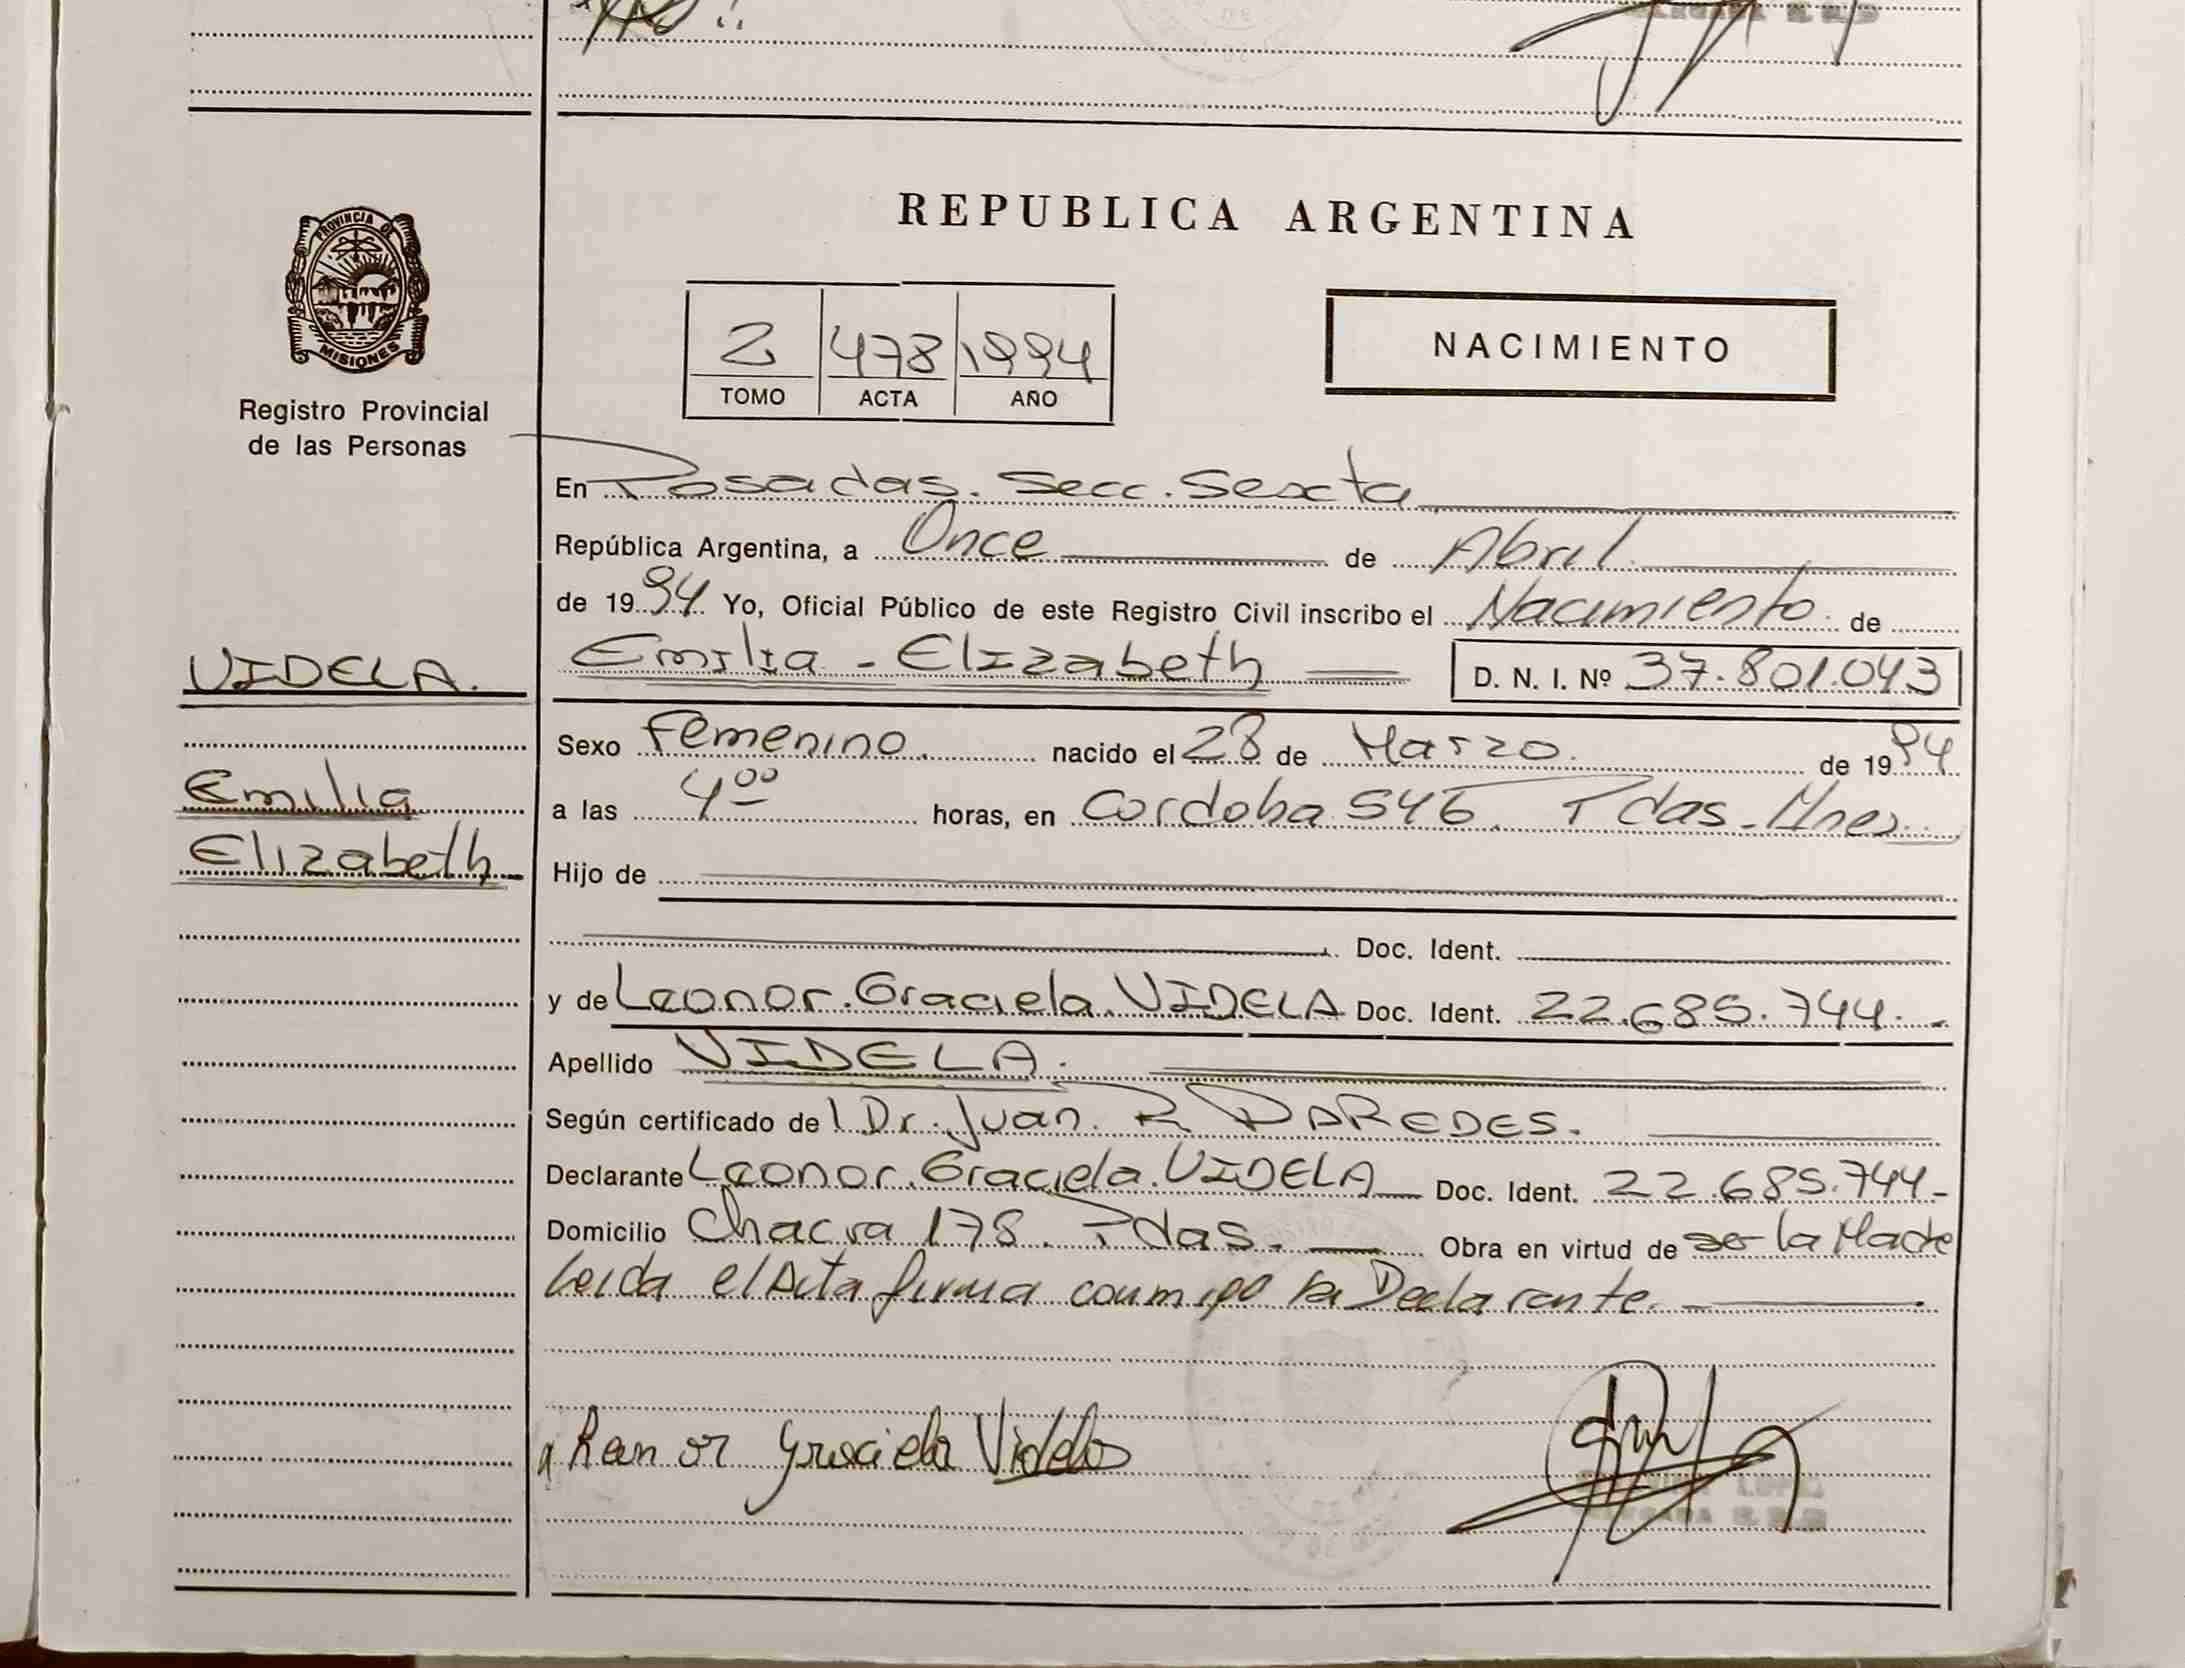 PROVINCIA DE
MISIONES
Registro Provincial
de las Personas
VIDELA.
Emilia
Elizabeth
REPUBLICA ARGENTINA
2 478 1994
TOMO ACTA AÑO
NACIMIENTO
En Posadas. Secc. Sexta
República Argentina, a Once de Abril
de 1994 Yo, Oficial Público de este Registro Civil inscribo el Nacimiento de
Emilia - Elizabeth D. N. I. Nº 37.801.043
Sexo Femenino. nacido el 28 de Marzo. de 1994
a las 4 00 horas, en Cordoba 546. Pdas - Mnes.
Hijo de
Doc. Ident.
y de Leonor. Graciela. VIDELA Doc. Ident. 22.685.744.-
Apellido VIDELA.
Según certificado del Dr. Juan. R. PAREDES.
Declarante Leonor. Graciela. VIDELA Doc. Ident. 22.685.744-
Domicilio Chacra 178. Pdas. Obra en virtud de ser la Madre
Leida el Acta firma conmigo la Declarante.
Graciela Videla